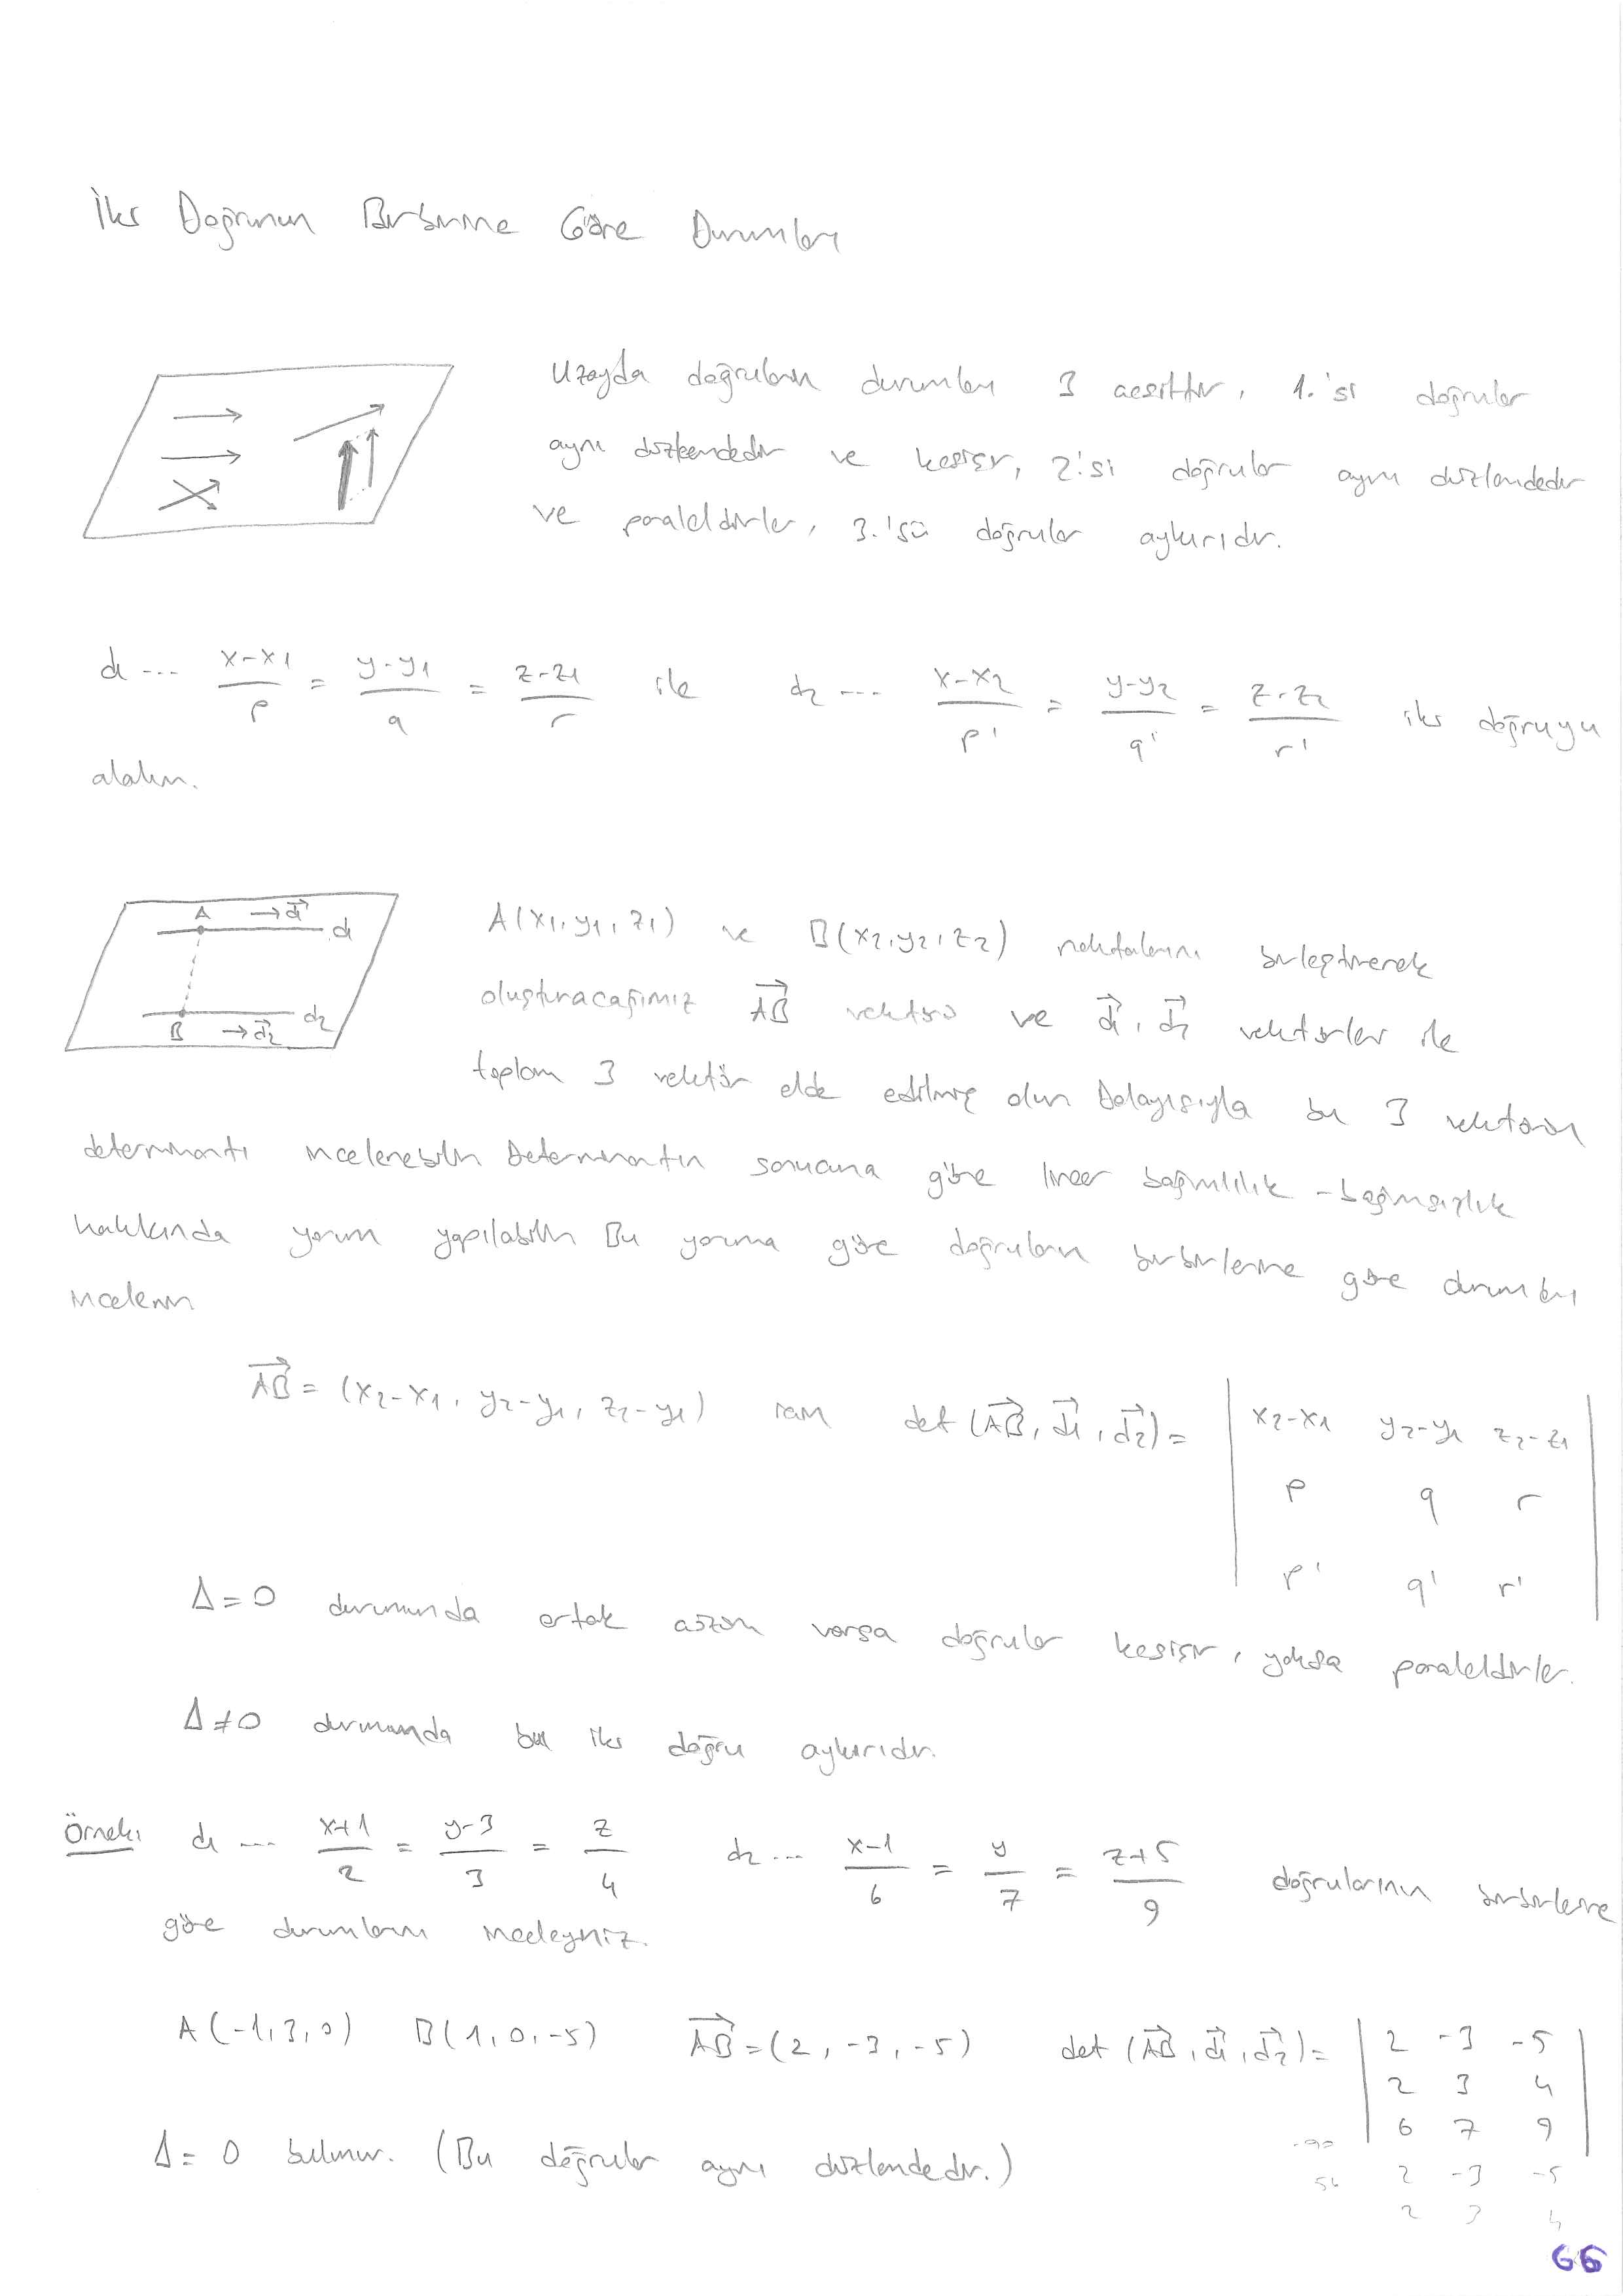 İki Doğrunun Birbirine Göre Durumları
Uzayda doğruların durumları 3 çeşittir, 1.'si doğrular
aynı düzlemdedir ve kesişir, 2.'si doğrular aynı düzlemdedir
ve paraleldirler, 3.'sü doğrular aykırıdır.
d₁ ... (x-x₁)/p = (y-y₁)/q = (z-z₁)/r ile d₂ ... (x-x₂)/p' = (y-y₂)/q' = (z-z₂)/r' iki doğruyu
alalım.
A d₁⃗ d₁
B d₂⃗ d₂
A(x₁,y₁,z₁) ve B(x₂,y₂,z₂) noktalarını birleştirerek
oluşturacağımız AB⃗ vektörü ve d₁⃗, d₂⃗ vektörler ile
toplam 3 vektör elde edilmiş olur. Dolayısıyla bu 3 vektörün
determinantı incelenebilir. Determinantın sonucuna göre lineer bağımlılık - bağımsızlık
hakkında yorum yapılabilir. Bu yoruma göre doğruların birbirlerine göre durumları
incelenir.
AB⃗ = (x₂-x₁, y₂-y₁, z₂-y₁) için det(AB⃗, d₁⃗, d₂⃗) = | x₂-x₁ y₂-y₁ z₂-z₁ |
| p q r |
| p' q' r' |
Δ=0 durumunda ortak çözüm varsa doğrular kesişir, yoksa paraleldirler.
Δ≠0 durumunda bu iki doğru aykırıdır.
Örnek: d₁ ... (x+1)/2 = (y-3)/3 = z/4 d₂ ... (x-1)/6 = y/7 = (z+5)/9 doğrularının birbirlerine
göre durumlarını inceleyiniz.
A(-1,3,0) B(1,0,-5) AB⃗ = (2,-3,-5) det(AB⃗, d₁⃗, d₂⃗) = | 2 -3 -5 |
| 2 3 4 |
| 6 7 9 |
2 -3 -5
2 3 4
Δ = 0 bulunur. (Bu doğrular aynı düzlemdedir.)
66